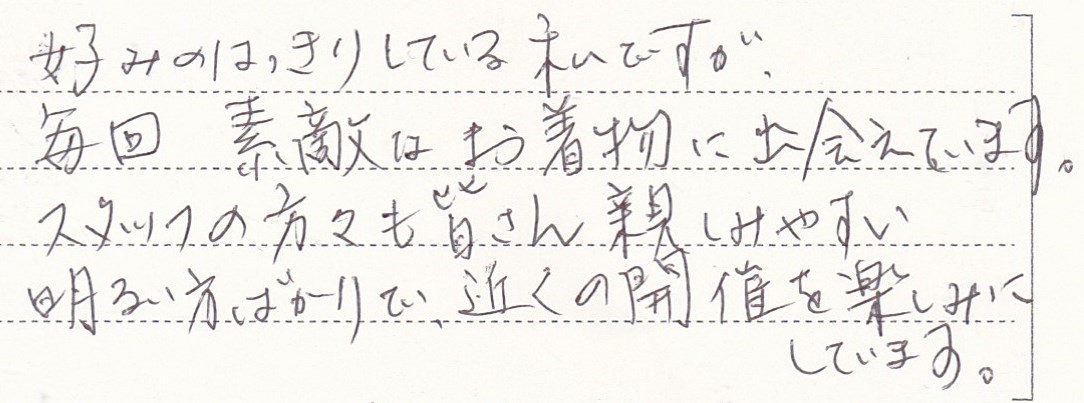 好みのはっきりしている私ですが、
毎回 素敵なお着物に出会えています。
スタッフの方々も皆さん親しみやすい
明るい方ばかりで、近くの開催を楽しみに
しています。